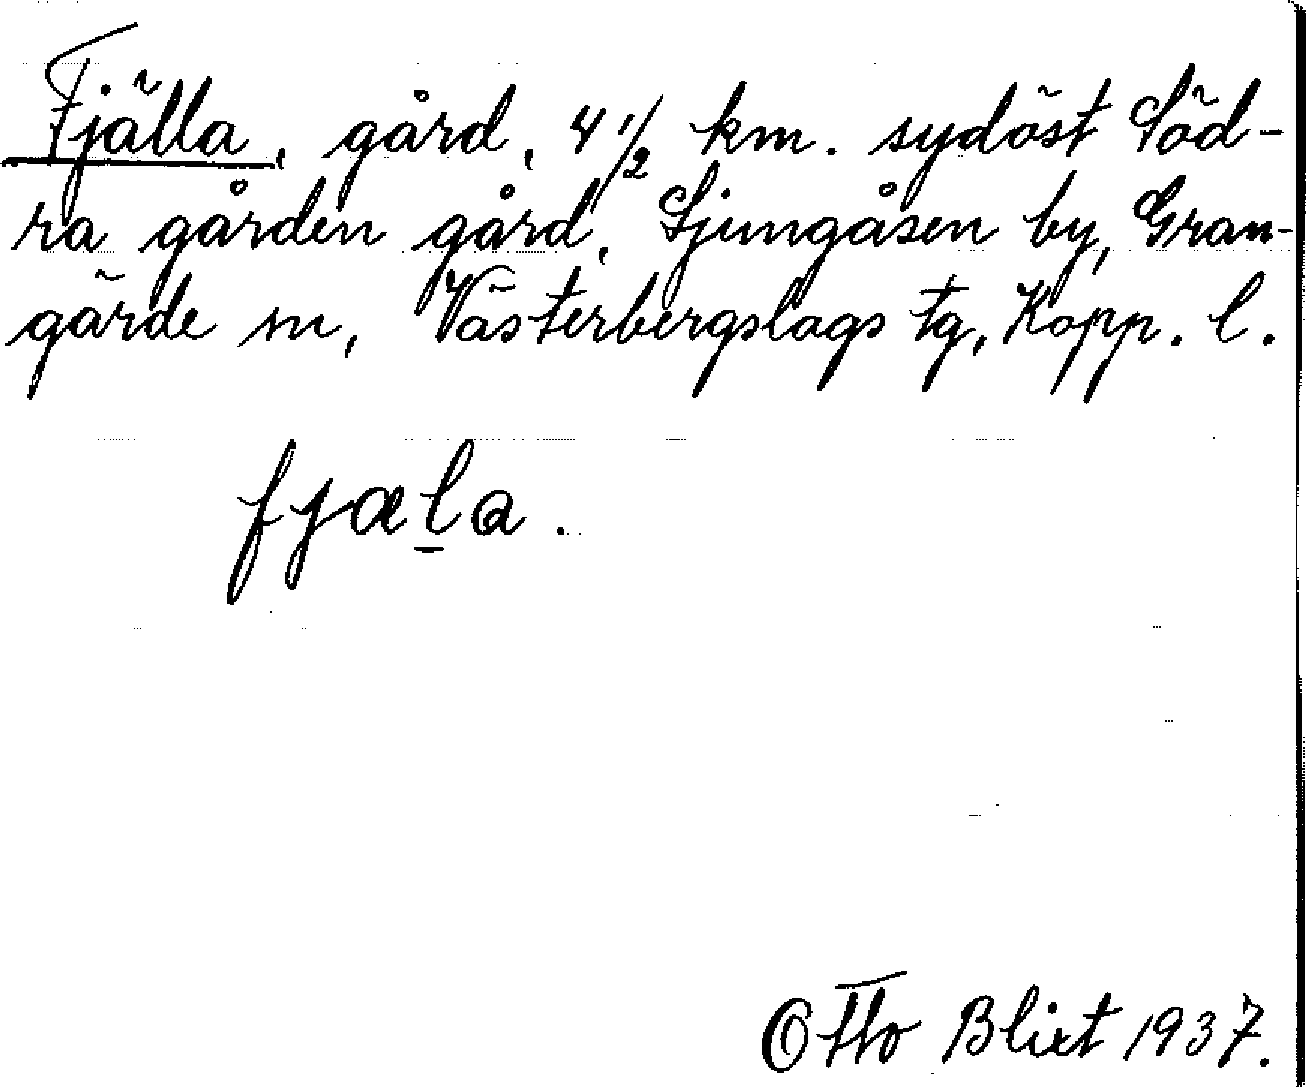 Fjälla, gård, 4 1/2 km. sydöst Söd-
ra gården gård, Ljungåsen by, Gran-
gärde sn, Västerbergslags tg, Kopp. l.
fjæla.
Otto Blixt 1937.